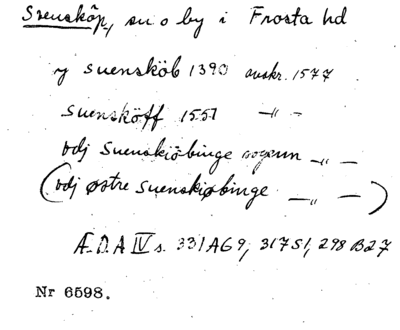 Svensköp, sn o by i Frosta hd
y suensköb 1390 avskr. 1577
suensköff 1551 —"—
vdj suenskiöbinge sogenn —"—
(vdj østre suenskiøbinge —"—)
Æ.D.A IV s. 331 AG 9, 317 S1, 298 B27
Nr 6598.